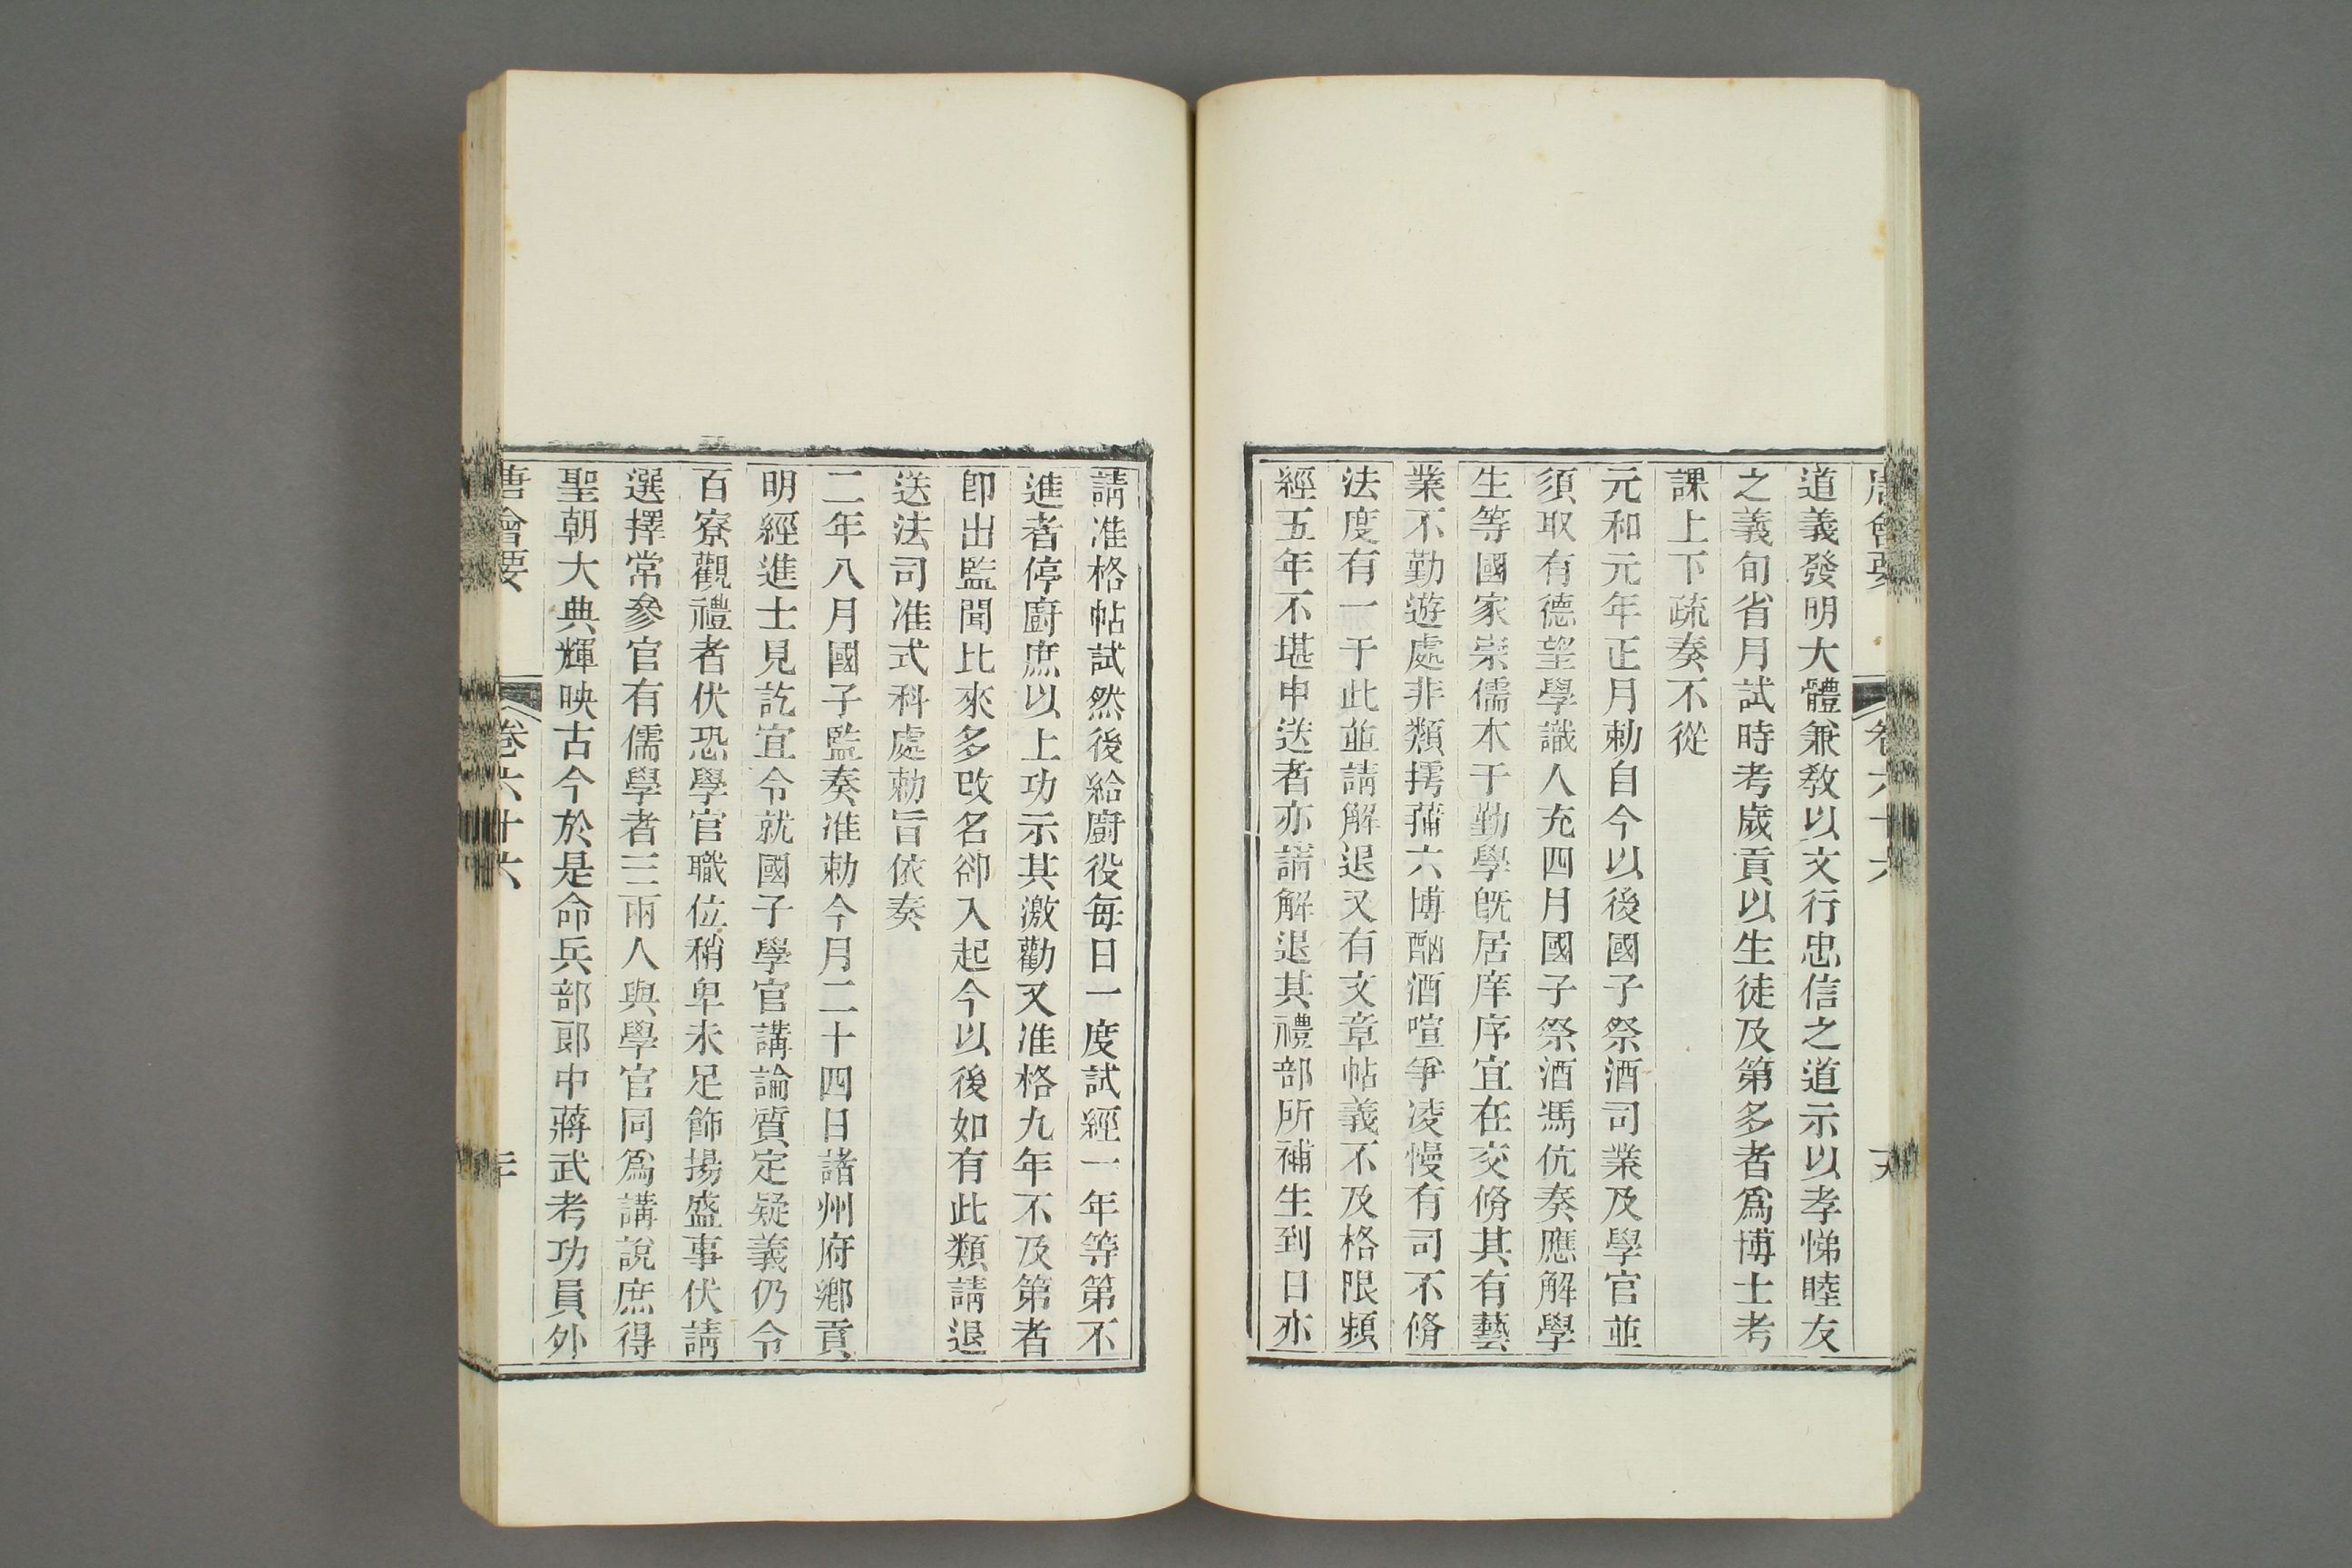 唐會要 卷六十六
道義發明大體兼敎以文行忠信之道示以孝悌睦友
之義旬省月試時考歲貢以生徒及第多者爲博士考
課上下疏奏不從
元和元年正月勅自今以後國子祭酒司業及學官並
須取有德望學識人充四月國子祭酒馮伉奏應解學
生等國家崇儒本于勤學旣居庠序宜在交脩其有藝
業不勤遊處非類摴蒱六博酗酒喧爭凌慢有司不脩
法度有一于此並請解退又有文章帖義不及格限頻
經五年不堪申送者亦請解退其禮部所補生到日亦
請准格帖試然後給廚役每日一度試經一年等第不
進者停廚庶以上功示其激勸又准格九年不及第者
卽出監聞比來多改名卻入起今以後如有此類請退
送法司准式科處勅旨依奏
二年八月國子監奏准勅今月二十四日諸州府鄉貢
明經進士見訖宜令就國子學官講論質定疑義仍令
百寮觀禮者伏恐學官職位稍卑未足飾揚盛事伏請
選擇常參官有儒學者三兩人與學官同爲講說庶得
聖朝大典輝映古今於是命兵部郎中蔣武考功員外
唐會要 卷六十六